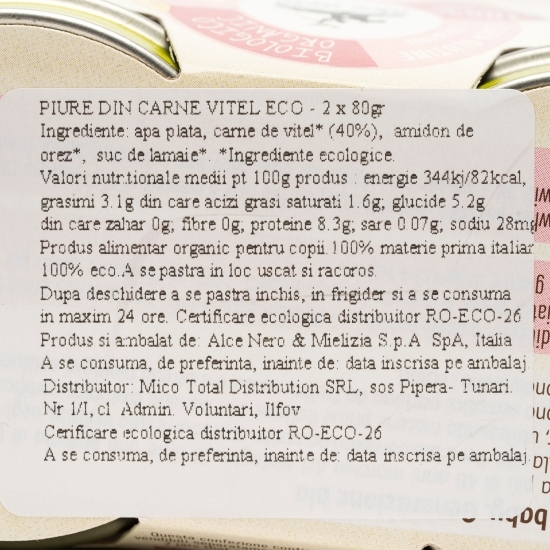 BIOLOGICO
ORGANIC
PIURE DIN CARNE VITEL ECO - 2 x 80gr
Ingrediente: apa plata, carne de vitel* (40%), amidon de
orez*, suc de lamaie*. *Ingrediente ecologice.
Valori nutritionale medii pt 100g produs : energie 344kj/82kcal,
grasimi 3.1g din care acizi grasi saturati 1.6g; glucide 5.2g
din care zahar 0g; fibre 0g; proteine 8.3g; sare 0.07g; sodiu 28mg
Produs alimentar organic pentru copii.100% materie prima italian
100% eco.A se pastra in loc uscat si racoros.
Dupa deschidere a se pastra inchis, in frigider si a se consuma
in maxim 24 ore. Certificare ecologica distribuitor RO-ECO-26
Produs si ambalat de: Alce Nero & Mielizia S.p.A. SpA, Italia
A se consuma, de preferinta, inainte de: data inscrisa pe ambalaj.
Distribuitor: Mico Total Distribution SRL, sos Pipera- Tunari.
Nr 1/I, cl. Admin. Voluntari, Ilfov
Cerificare ecologica distribuitor RO-ECO-26
A se consuma, de preferinta, inainte de: data inscrisa pe ambalaj.
Questa confezione